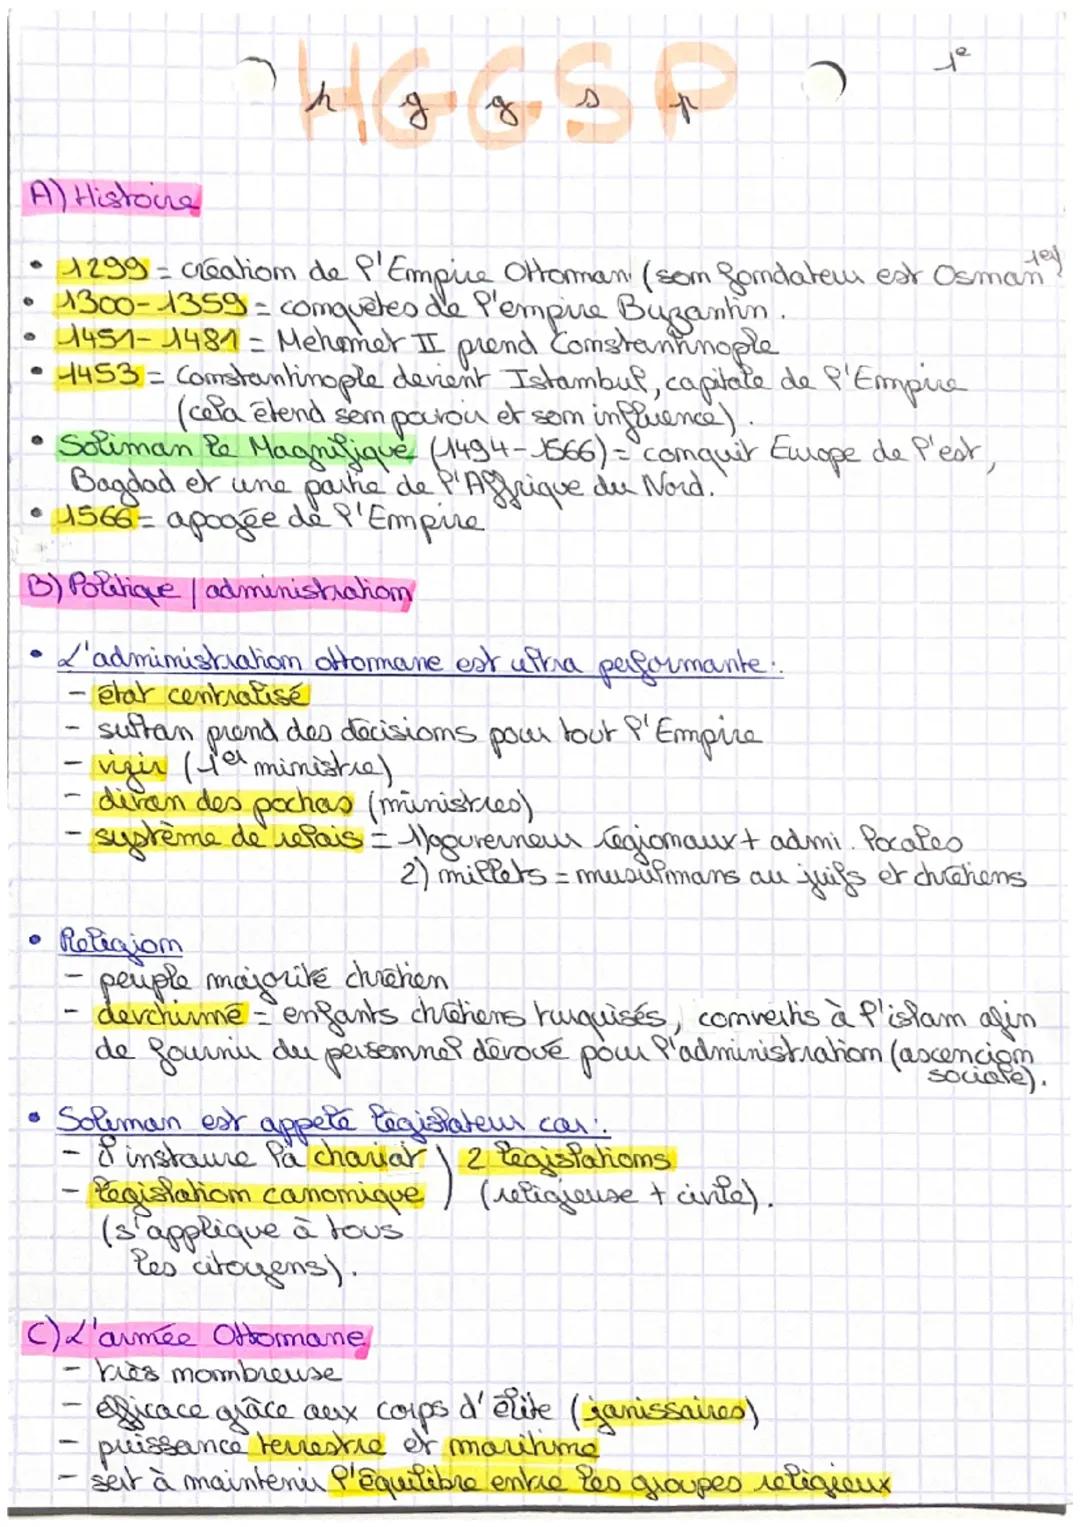 HGGSP
h g g s p
1e
A) Histoire
• 1299 = création de l'Empire Ottoman (son fondateur est Osman 1er)
• 1300-1359 = conquêtes de l'empire Byzantin.
• 1451-1481 = Mehmet II prend Constantinople
• 1453 = Constantinople devient Istambul, capitale de l'Empire
(cela étend son pouvoir et son influence).
• Soliman le Magnifique (1494-1566) = conquit Europe de l'est,
Bagdad et une partie de l'Affrique du Nord.
• 1566 = apogée de l'Empire
B) Politique / administration
• L'administration ottomane est ultra performante :
- état centralisé
- sultan prend des décisions pour tout l'Empire
- vizir (1er ministre)
- divan des pachas (ministres)
- système de relais = 1) gouverneur régionaux + admi. locales
2) millets = musulmans au juifs et chrétiens
• Religion
- peuple majorité chrétien
- devchirmé = enfants chrétiens turquisés, convertis à l'islam afin
de fournir du personnel dévoué pour l'administration (ascencion
sociale).
• Soliman est appelé législateur car :
- il instaure la chariat ) 2 législations
- législation canonique ) (religieuse + civile).
(s'applique à tous
les citoyens).
C) L'armée Ottomane
- très nombreuse
- efficace grâce aux corps d'élite (janissaires)
- puissance terrestre et maritime
- sert à maintenir l'équilibre entre les groupes religieux